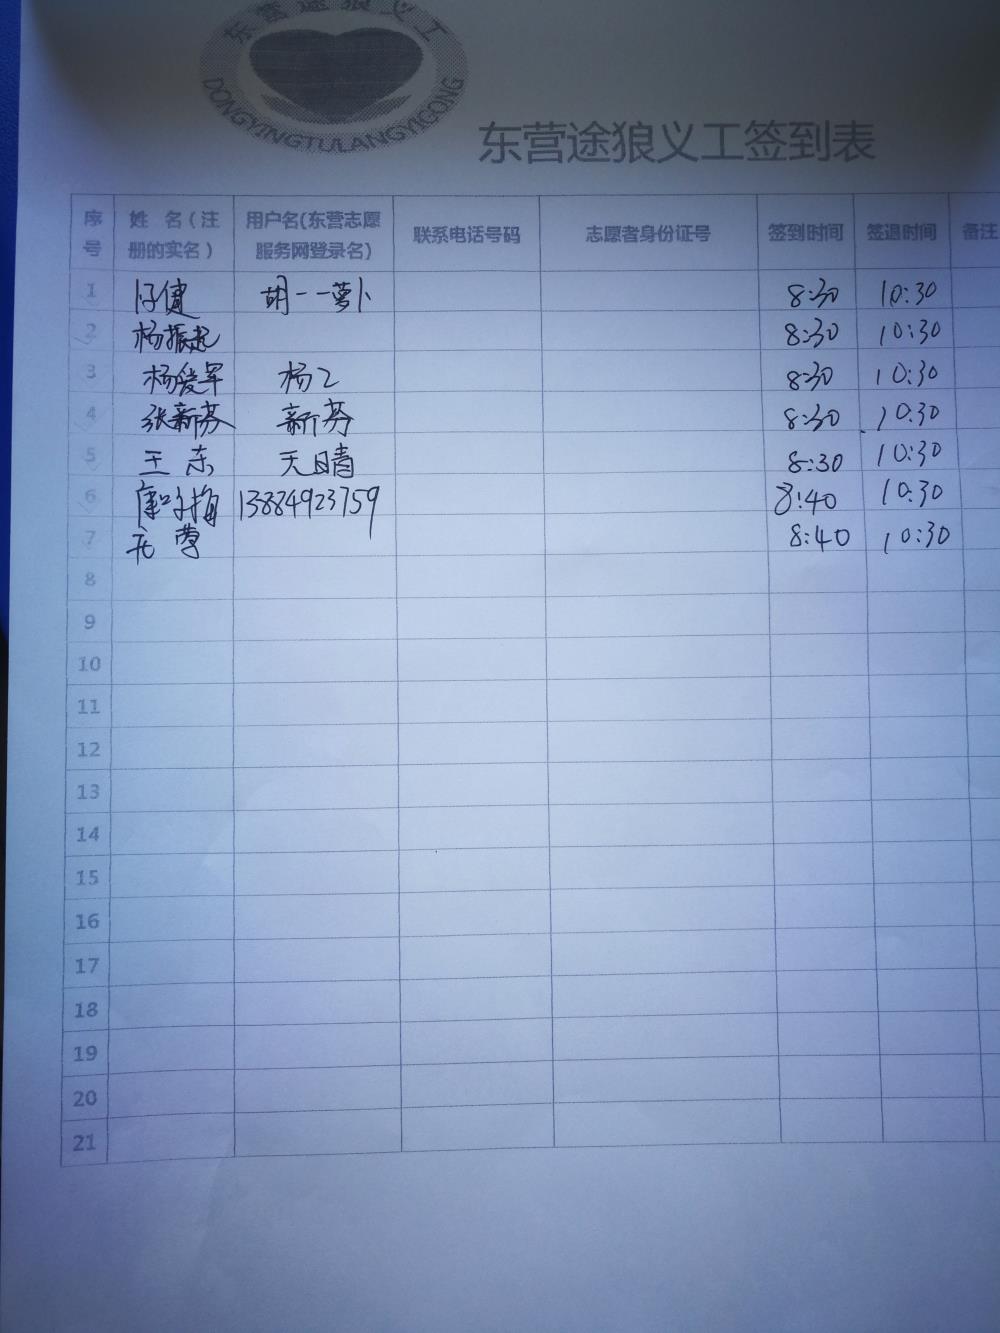 东营途狼义工
DONGYINGTULANGYIGONG
东营途狼义工签到表
序号 姓 名（注册的实名） 用户名(东营志愿服务网登录名) 联系电话号码 志愿者身份证号 签到时间 签退时间 备注
1 胡一一萝卜 8:30 10:30
2 杨振起 8:30 10:30
3 杨爱军 杨乙 8:30 10:30
4 张新芬 新芬 8:30 10:30
5 王东 天晴 8:30 10:30
6 13884923759 8:40 10:30
7 8:40 10:30
8
9
10
11
12
13
14
15
16
17
18
19
20
21